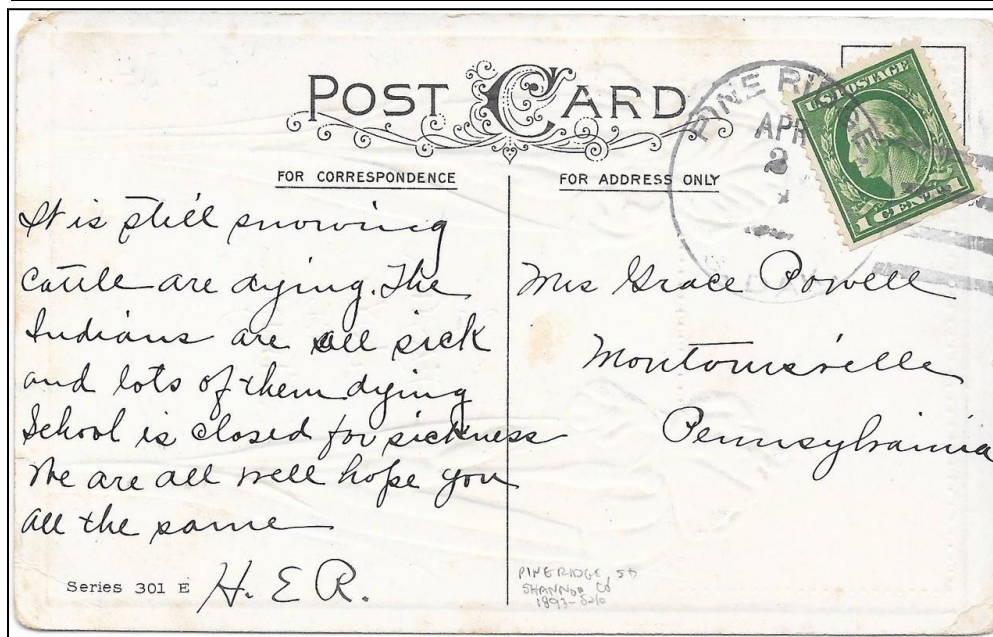 POST CARD
FOR CORRESPONDENCE
FOR ADDRESS ONLY
PINE RIDGE,
APR
2
U.S. POSTAGE
1 CENT 1
It is still snowing
Cattle are dying. The
Indians are all sick
and lots of them dying
School is closed for sickness
We are all well hope you
all the same
H. E. R.
Mrs Grace Powell
Montoursville
Pennsylvania
Series 301 E
PINE RIDGE, SD
SHANNON CO
1893-